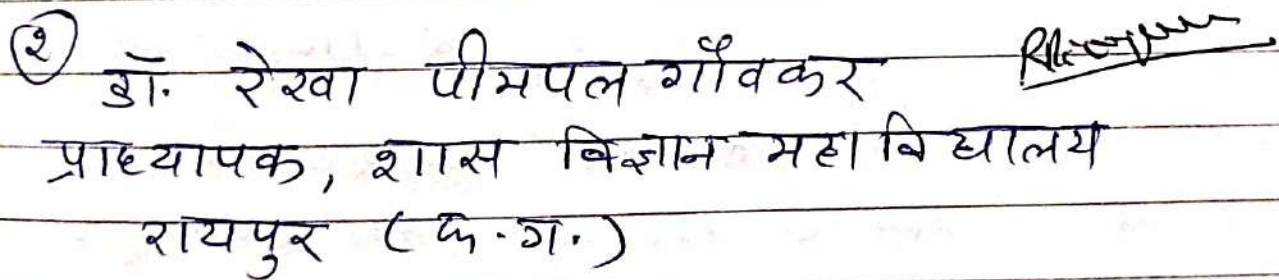 २
डॉ. रेखा पीमपल गाँवकर
प्राध्यापक, शास विज्ञान महाविद्यालय
रायपुर (छ.ग.)